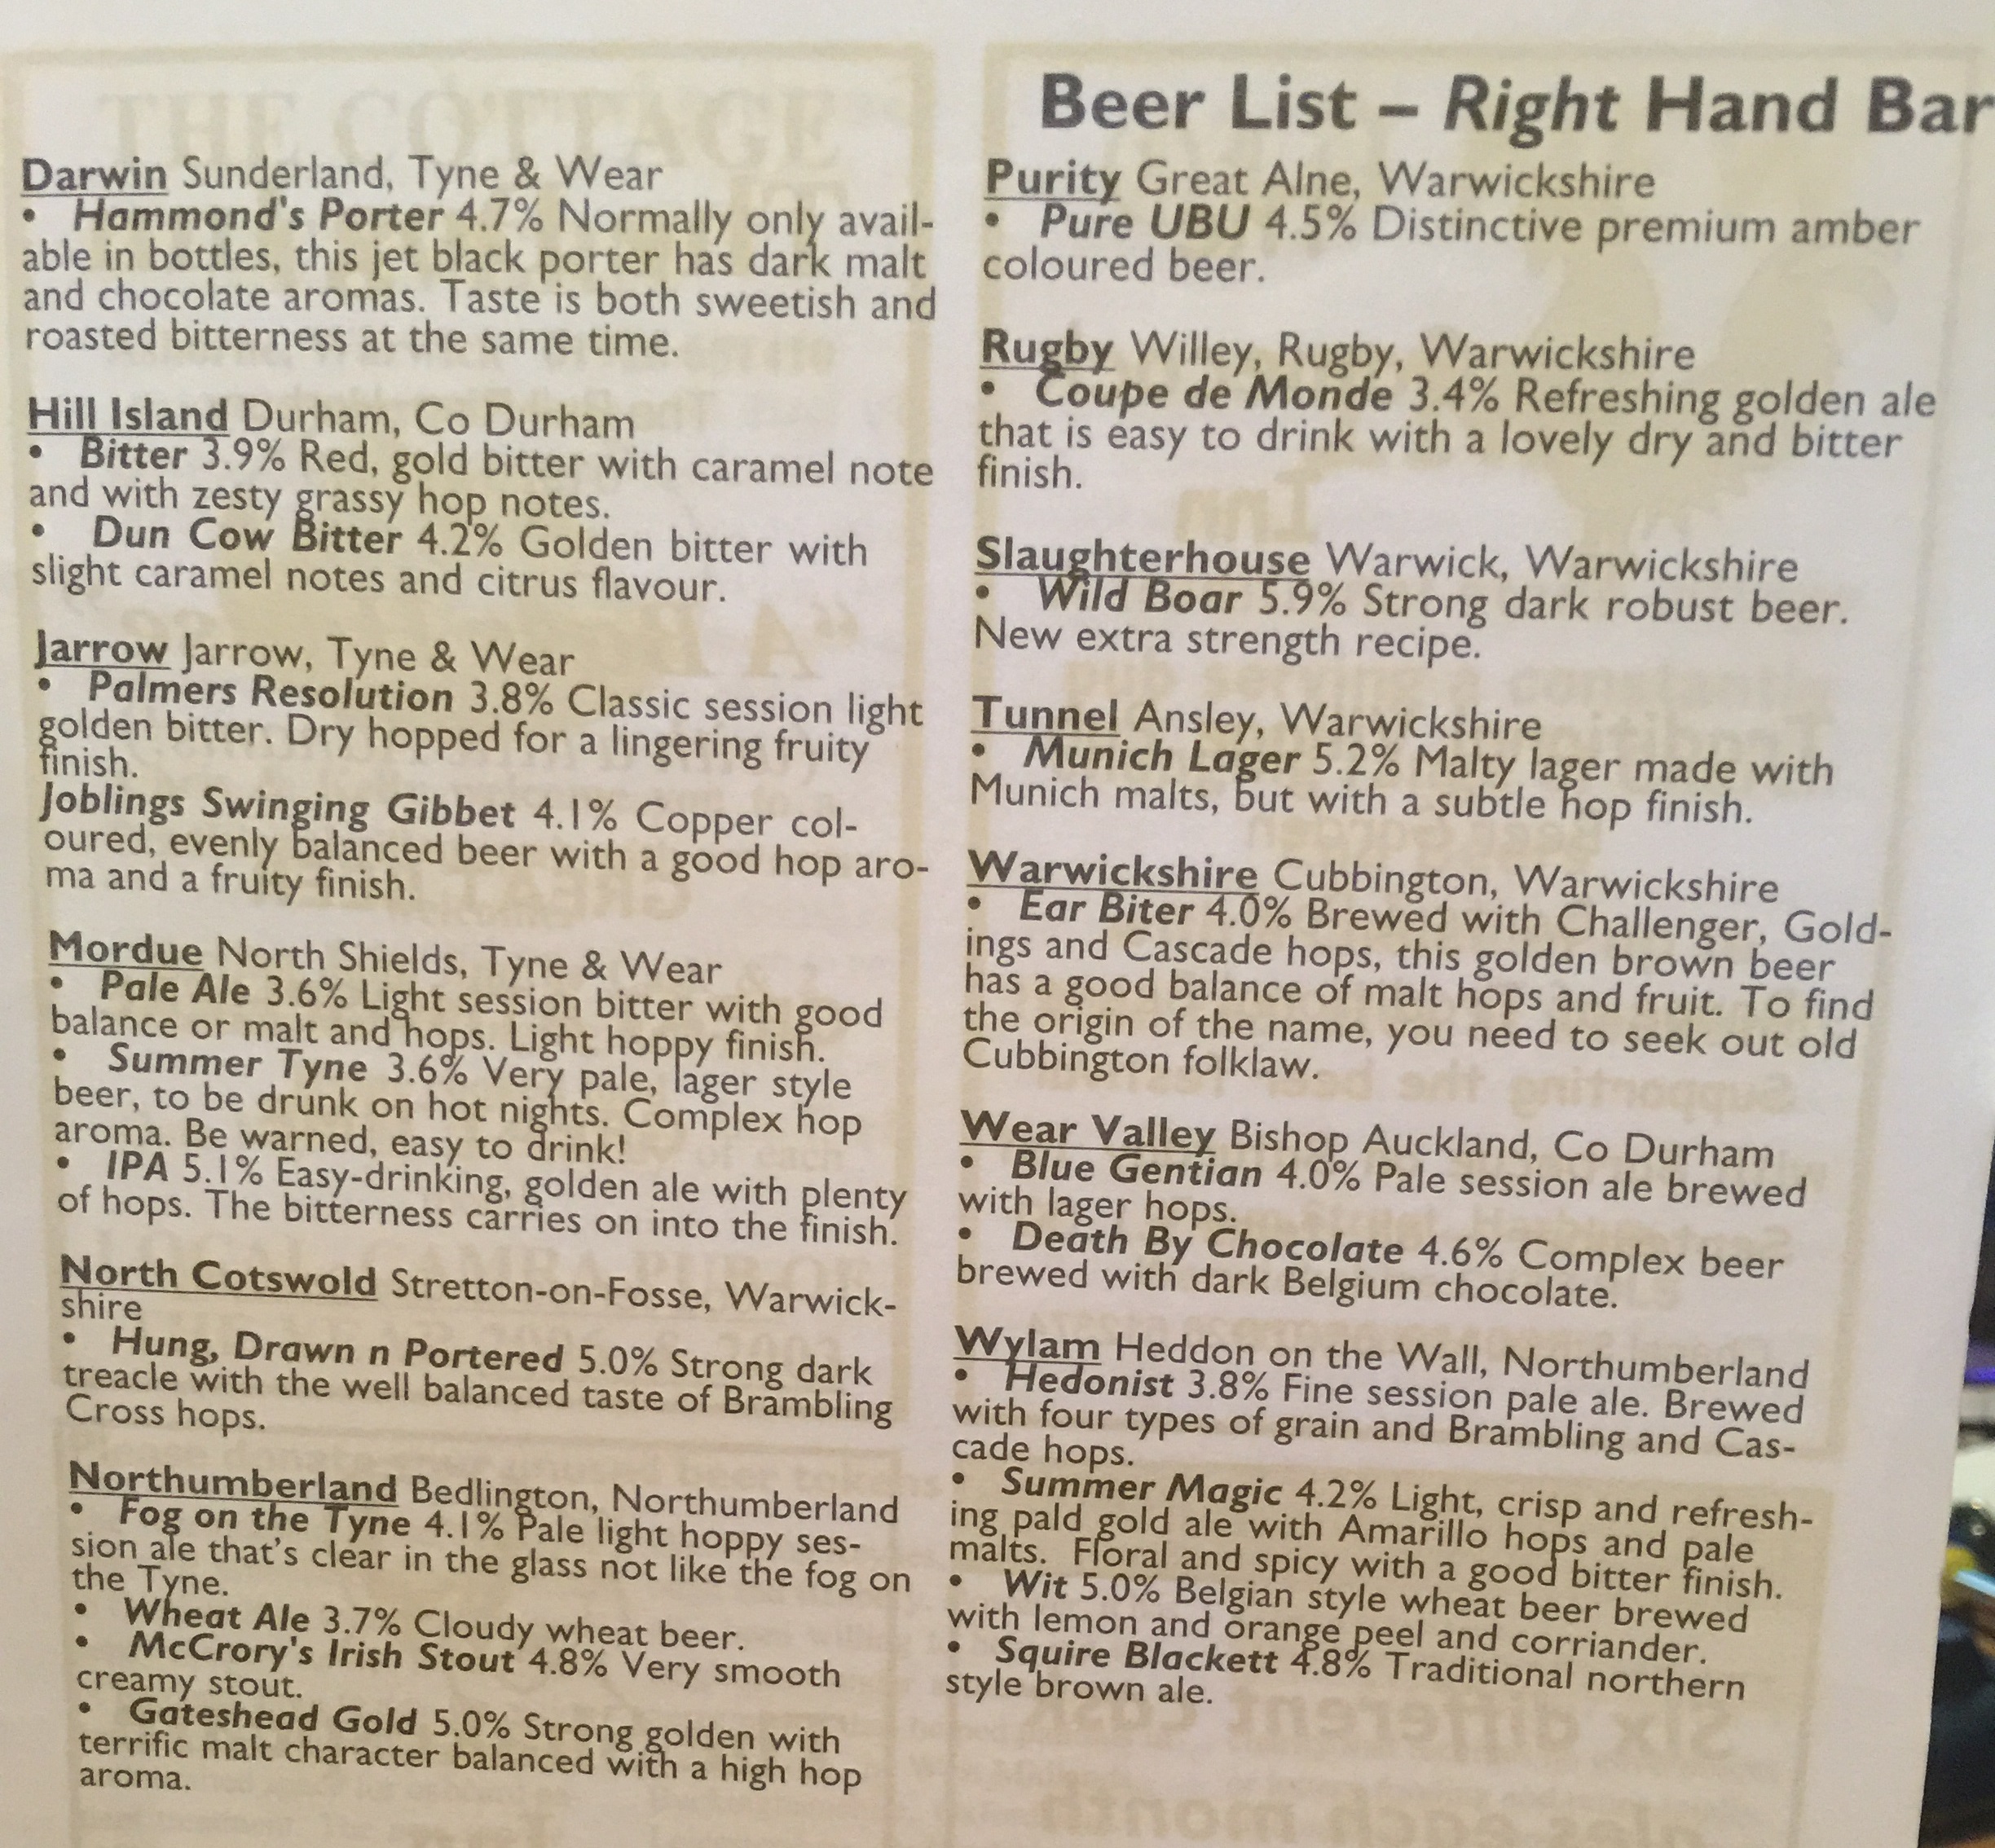 Darwin Sunderland, Tyne & Wear
• Hammond's Porter 4.7% Normally only avail-
able in bottles, this jet black porter has dark malt
and chocolate aromas. Taste is both sweetish and
roasted bitterness at the same time.
Hill Island Durham, Co Durham
• Bitter 3.9% Red, gold bitter with caramel note
and with zesty grassy hop notes.
• Dun Cow Bitter 4.2% Golden bitter with
slight caramel notes and citrus flavour.
Jarrow Jarrow, Tyne & Wear
• Palmers Resolution 3.8% Classic session light
golden bitter. Dry hopped for a lingering fruity
finish.
Joblings Swinging Gibbet 4.1% Copper col-
oured, evenly balanced beer with a good hop aro-
ma and a fruity finish.
Mordue North Shields, Tyne & Wear
• Pale Ale 3.6% Light session bitter with good
balance or malt and hops. Light hoppy finish.
• Summer Tyne 3.6% Very pale, lager style
beer, to be drunk on hot nights. Complex hop
aroma. Be warned, easy to drink!
• IPA 5.1% Easy-drinking, golden ale with plenty
of hops. The bitterness carries on into the finish.
North Cotswold Stretton-on-Fosse, Warwick-
shire
• Hung, Drawn n Portered 5.0% Strong dark
treacle with the well balanced taste of Brambling
Cross hops.
Northumberland Bedlington, Northumberland
• Fog on the Tyne 4.1% Pale light hoppy ses-
sion ale that's clear in the glass not like the fog on
the Tyne.
• Wheat Ale 3.7% Cloudy wheat beer.
• McCrory's Irish Stout 4.8% Very smooth
creamy stout.
• Gateshead Gold 5.0% Strong golden with
terrific malt character balanced with a high hop
aroma.
Beer List – Right Hand Bar
Purity Great Alne, Warwickshire
• Pure UBU 4.5% Distinctive premium amber
coloured beer.
Rugby Willey, Rugby, Warwickshire
• Coupe de Monde 3.4% Refreshing golden ale
that is easy to drink with a lovely dry and bitter
finish.
Slaughterhouse Warwick, Warwickshire
• Wild Boar 5.9% Strong dark robust beer.
New extra strength recipe.
Tunnel Ansley, Warwickshire
• Munich Lager 5.2% Malty lager made with
Munich malts, but with a subtle hop finish.
Warwickshire Cubbington, Warwickshire
• Ear Biter 4.0% Brewed with Challenger, Gold-
ings and Cascade hops, this golden brown beer
has a good balance of malt hops and fruit. To find
the origin of the name, you need to seek out old
Cubbington folklaw.
Wear Valley Bishop Auckland, Co Durham
• Blue Gentian 4.0% Pale session ale brewed
with lager hops.
• Death By Chocolate 4.6% Complex beer
brewed with dark Belgium chocolate.
Wylam Heddon on the Wall, Northumberland
• Hedonist 3.8% Fine session pale ale. Brewed
with four types of grain and Brambling and Cas-
cade hops.
• Summer Magic 4.2% Light, crisp and refresh-
ing pald gold ale with Amarillo hops and pale
malts. Floral and spicy with a good bitter finish.
• Wit 5.0% Belgian style wheat beer brewed
with lemon and orange peel and corriander.
• Squire Blackett 4.8% Traditional northern
style brown ale.